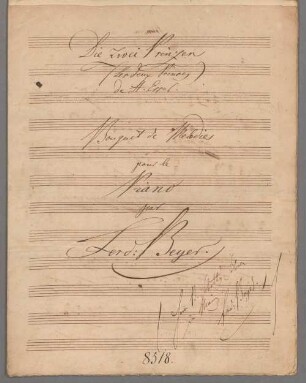 Die zwei Prinzen
(Les deux Princes)
de H. Esser.
Bouquet de Melodies
pour le
Piano
par
Ferd: Beyer.
8518.